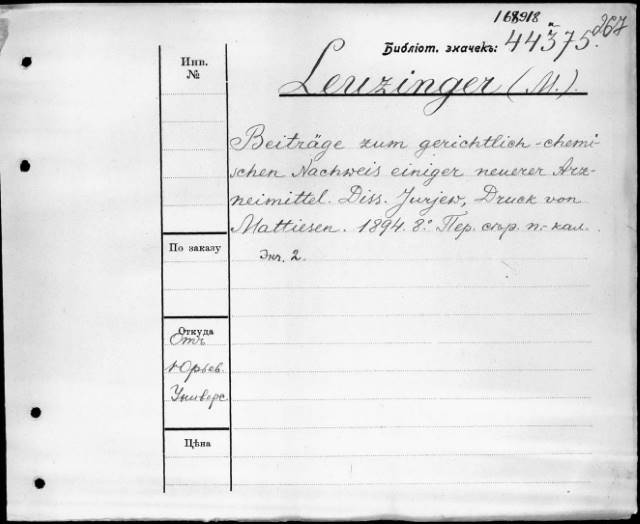 168918
267
Библіот. значекъ: 44375.
Инв.
№
Leuzinger (M.).
Beiträge zum gerichtlich-chemi-
schen Nachweis einiger neuerer Arz-
neimittel. Diss. Jurjew, Druck von
Mattiesen. 1894. 8.° Пер. стр. п.-кал.
Экз. 2.
По заказу
Откуда
Отъ
Юрьев.
Универс.
Цѣна